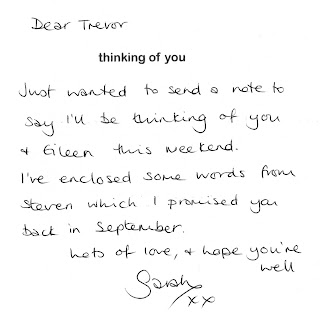 Dear Trevor
thinking of you
Just wanted to send a note to
say I'll be thinking of you
& Eileen this weekend.
I've enclosed some words from
Steven which I promised you
back in September.
Lots of love, & hope you're
well
Sarah
xx